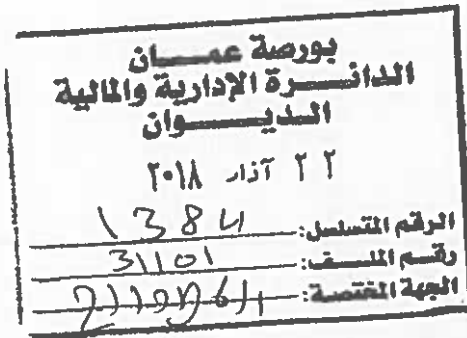 بورصة عمـــان
الدائـــرة الإدارية والمالية
الديـــوان
٢٢ آذار ٢٠١٨
الرقم المتسلسل: 1384
رقم الملـف: 31101
الجهة المختصة: